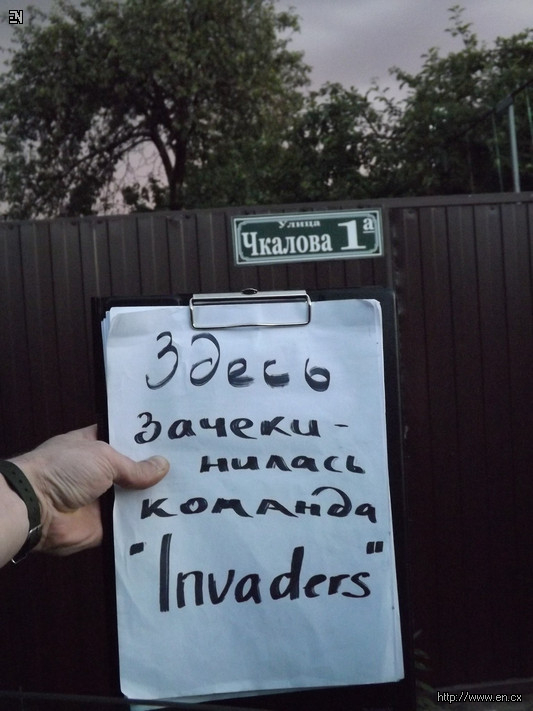 EN
Улица
Чкалова 1а
Здесь
зачеки-
нилась
команда
"Invaders"
http://www.en.cx